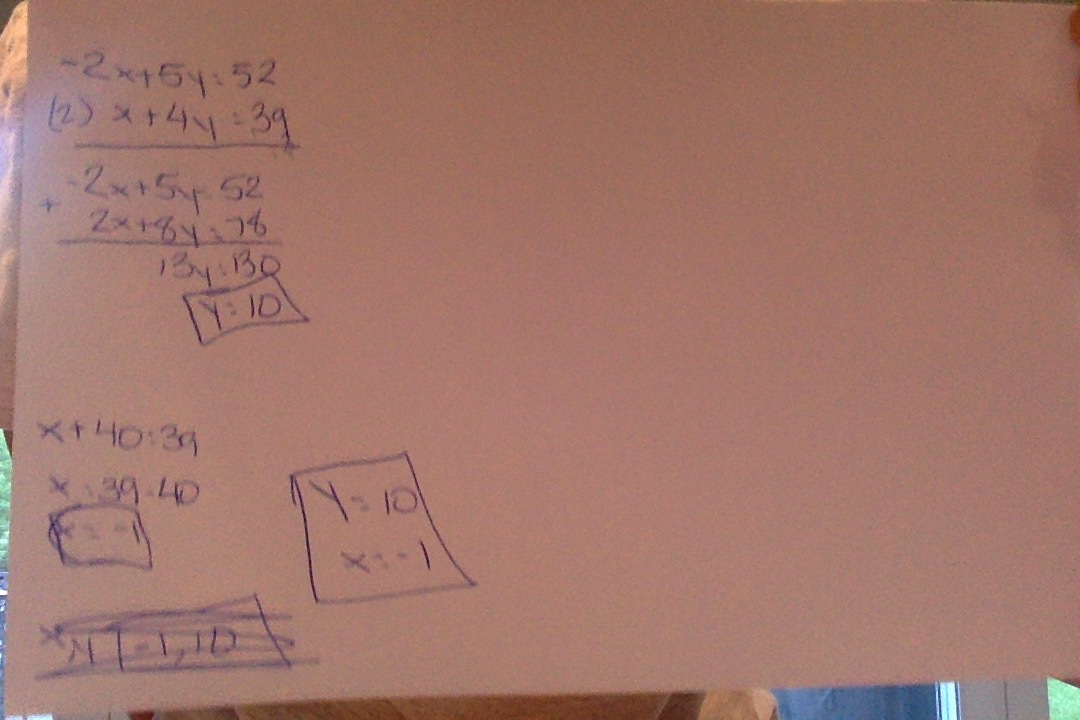 -2x+5y=52
(2) x+4y=39
-2x+5y=52
+ 2x+8y=78
13y=130
y=10
x+40=39
x=39-40
x=-1
y=10
x=-1
x,y -1,10